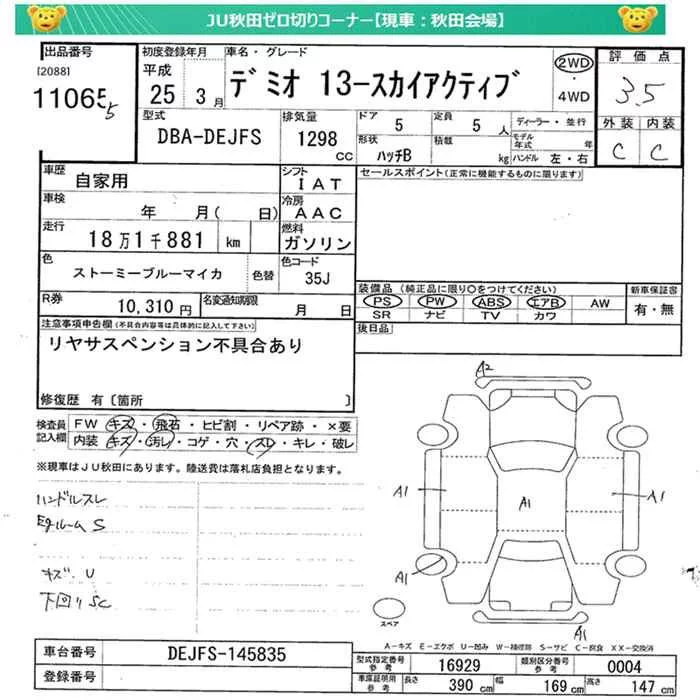 JU秋田ゼロ切りコーナー【現車：秋田会場】
出品番号
[2088]
11065
5
初度登録年月
平成
25 3月
車名・グレード
デミオ 13-スカイアクティブ
2WD
4WD
評価点
3.5
外装 内装
C C
型式
DBA-DEJFS
排気量
1298
cc
ドア
5
定員
5 人
形状
ハッチB
積載
kg
ディーラー・並行
モデル年式 年
ハンドル 左・右
車歴
自家用
シフト
IAT
車検
年 月( 日)
冷房
AAC
走行
18万1千881 km
燃料
ガソリン
色
ストーミーブルーマイカ
色替
色コード
35J
R券
10,310円
名変通知期限
月 日
セールスポイント(正常に機能するものに限ります)
装備品(純正品に限り○をつけてください)
PS PW ABS エアB AW
SR ナビ TV カワ
新車保証書
有・無
後日品
注意事項申告欄(不具合内容等は具体的に記入して下さい)
リヤサスペンション不具合あり
修復歴 有〔箇所 〕
検査員記入欄
FW キズ・飛石・ヒビ割・リペア跡・×要
内装 キズ・汚レ・コゲ・穴・スレ・キレ・破レ
※現車はJU秋田にあります。陸送費は落札店負担となります。
ハンドルスレ
Egルーム S
キズ・U
下回りSC
A2
A1
A1
A1
A1
A1
スペア
A-キズ E-エクボ U-凹み W-補修跡 S-サビ C-腐食 XX-交換済
車台番号
DEJFS-145835
登録番号
型式指定番号参考
16929
類別区分番号参考
0004
車庫証明用参考
長さ 390 cm 幅 169 cm 高さ 147 cm